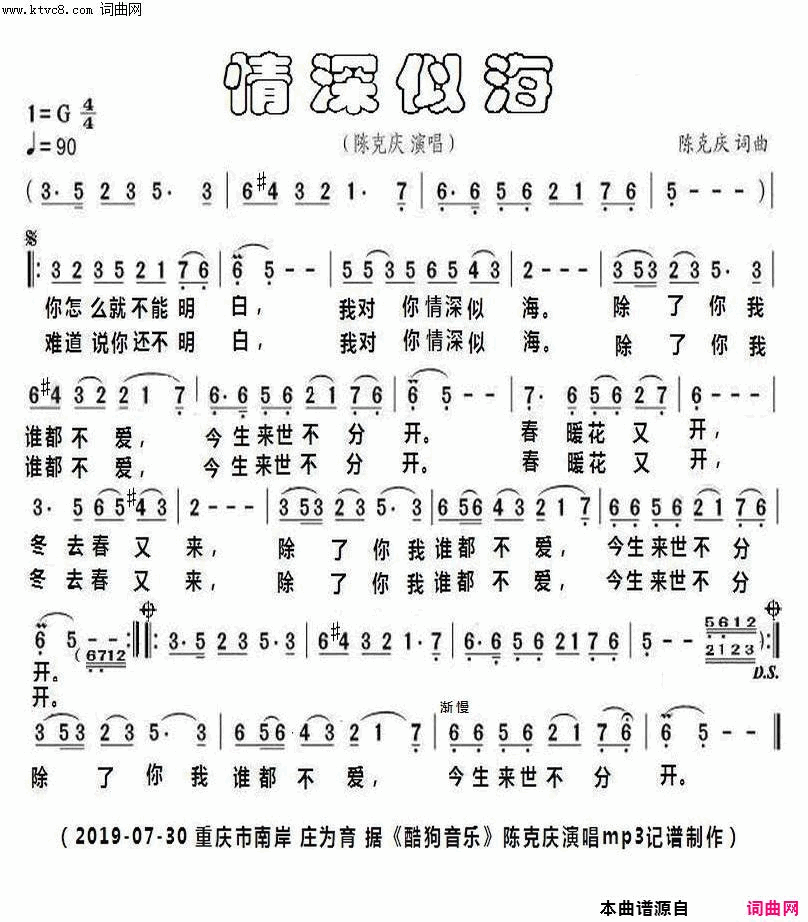 www.ktvc8.com 词曲网
情深似海
1=G 4/4
♩=90
(陈克庆 演唱)
陈克庆 词曲
(3· 5 2 3 5· 3 | 6 #4 3 2 1· 7 | 6· 6 5 6 2 1 7 6 | 5 - - - ) |
𝄋
‖: 3 2 3 5 2 1 7 6 | 6 5 - - | 5 5 3 5 6 5 4 3 | 2 - - - | 3 53 2 3 5· 3 |
你怎么就不能明 白, 我对 你情深似 海。 除 了 你 我
难道 说你还不明 白, 我对 你情深似 海。 除 了 你 我
6 #4 3 2 2 1 7 | 6· 6 5 6 2 1 7 6 | 6 5 - - | 7· 6 5 6 2 7 | 6 - - - |
谁都 不 爱, 今 生来世不 分 开。 春 暖花 又 开,
谁都 不 爱, 今 生来世不 分 开。 春 暖花 又 开,
3· 5 6 5 #4 3 | 2 - - - | 3 53 2 3 5· 3 | 6 56 4 3 2 1 7 | 6 6 5 6 2 1 7 6 |
冬 去春 又 来, 除 了 你 我谁都 不 爱, 今生来世不 分
冬 去春 又 来, 除 了 你 我谁都 不 爱, 今生来世不 分
6 5 - - (6712 :‖: 3· 5 2 3 5· 3 | 6 #4 3 2 1· 7 | 6· 6 5 6 21 7 6 | 5 - - 5612 2123) :‖
开。
开。
D.S.
渐 慢
3 53 2 3 5· 3 | 6 56 4 3 2 1 7 | 6 6 5 6 2 1 7 6 | 6 5 - - ‖
除 了 你 我 谁都 不 爱, 今生来世 不 分 开。
(2019-07-30 重庆市南岸 庄为育 据《酷狗音乐》陈克庆演唱mp3记谱制作)
本曲谱源自 词曲网